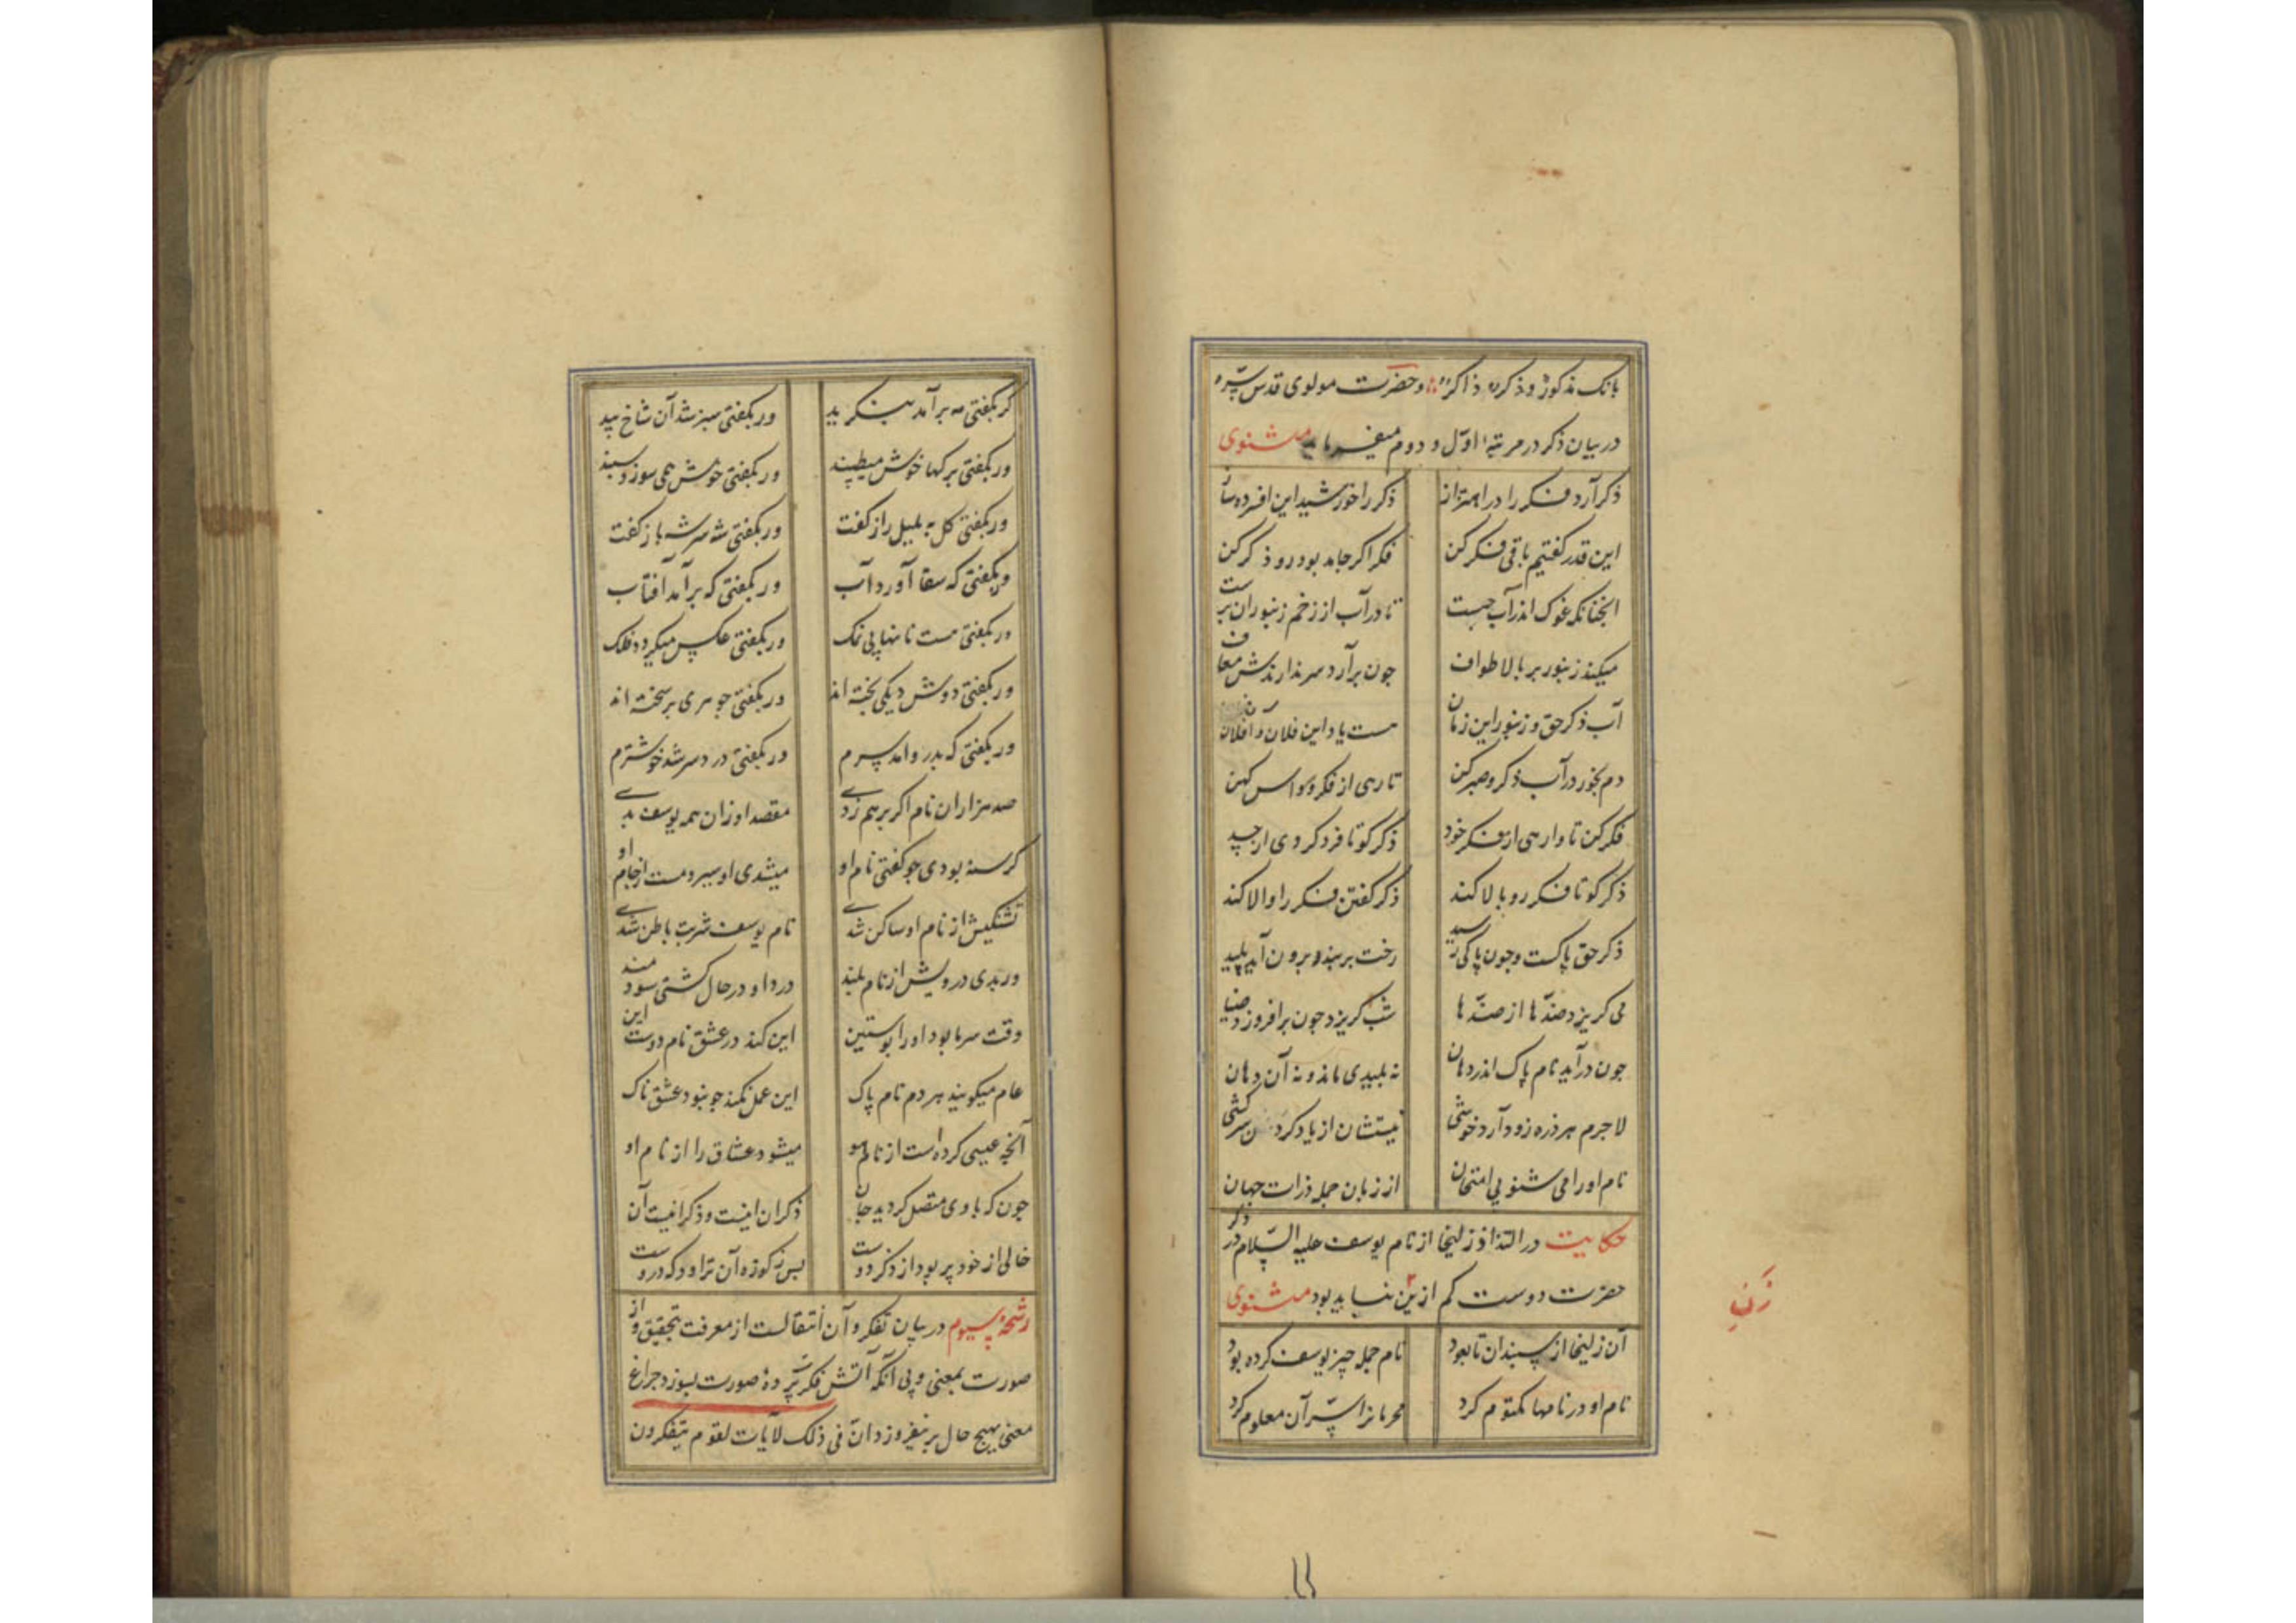 بانک مذکور و ذکر و ذاکر و حضرت مولوی قدس سره
در بیان ذکر در مرتبه اول و دوم میفرماید مثنوی
ذکر آرد فکر را در اهتزاز ذکر را خورشید این افسرده ساز
این قدر گفتیم باقی فکر کن فکر اکر جامد بود رو ذکر کن
انجنانکه غوک اندر آب جست تا در آب از زخم زنبوران برست
میکند زنبور بر بالا طواف جون برآرد سر ندارندش معاف
آب ذکر حق و زنبور این زمان هست یاد این فلان و آن فلان
دم بخور در آب ذکر و صبر کن تا رهی از فکر و وسواس کهن
فکر کن تا وارهی از فکر خود ذکر کو تا فرد کردی از جسد
ذکر کو تا فکر رو بالا کند ذکر کفتن فکر را والا کند
ذکر حق پاکست و جون پاکی رسید رخت بربندد برون آید پلید
می کریزد ضدّها از ضدّها شب کریزد جون برافروزد ضیا
جون درآید نام پاک اندر دهان نه پلیدی ماند و نه آن دهان
لاجرم هر ذره زود آرد خوشی نیستشان از یاد کردن سرکشی
نام او را می شنو بی امتحان از زبان جمله ذرات جهان
حکایت در التذاذ زلیخا از نام یوسف علیه السّلام در ذکر
حضرت دوست کم ازین نباید بود مثنوی
زن
آن زلیخا از سپندان تا بعود نام جمله جیز یوسف کرده بود
نام او در نامها مکتوم کرد محرمانرا سرّ آن معلوم کرد
کر بکفتی مه برآمد بنکرید ور بکفتی سبز شد آن شاخ بید
ور بکفتی برکها خوش میطپند ور بکفتی خوش همی سوزد سپند
ور بکفتی کل به بلبل راز کفت ور بکفتی شه سر شه باز کفت
ور بکفتی که سقا آورد آب ور بکفتی که برآمد آفتاب
ور بکفتی هست نانها بی نمک ور بکفتی عکس میکردد فلک
ور بکفتی دوش دیکی بخته اند ور بکفتی جوهری بر سخته اند
ور بکفتی که بدرد آمد سرم ور بکفتی درد سر شد خوشترم
صد هزاران نام اکر برهم زدی مقصد او زان همه یوسف بدی
کرسنه بودی جو کفتی نام او میشدی او سیر و مست از جام او
تشنکیش از نام او ساکن شدی نام یوسف شربت باطن شدی
ور بدی دردیش از نام بلند درد او در حال کشتی سودمند
وقت سرما بود او را بوستین این کند در عشق نام دوست این
عام میکویند هر دم نام پاک این عمل نکند جو نبود عشق ناک
آنچه عیسی کرده است از نام هو میشود عشاق را از نام او
جون که با وی متصل کردید جان ذکر آن اینست و ذکر اینست آن
خالی از خود پر بود از ذکر دوست بس ز کوزه آن تراود که دروست
رشحهٔ سیوم در بیان تفکر و آن انتقالست از معرفت بتحقیق و از
صورت بمعنی و بی آنکه آتش فکر پردهٔ صورت بسوزد جراغ
معنی بهیچ حال برنیفروزد ان فی ذلک لآیات لقوم یتفکرون